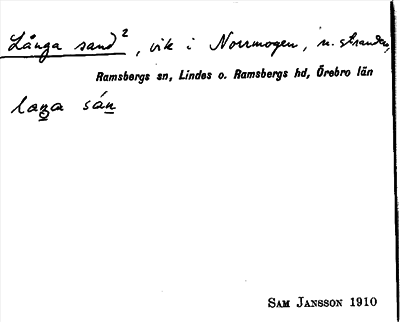 Långa sand², vik i Norrmogen, n. stranden,
Ramsbergs sn, Lindes o. Ramsbergs hd, Örebro län
laŋa sán
SAM JANSSON 1910